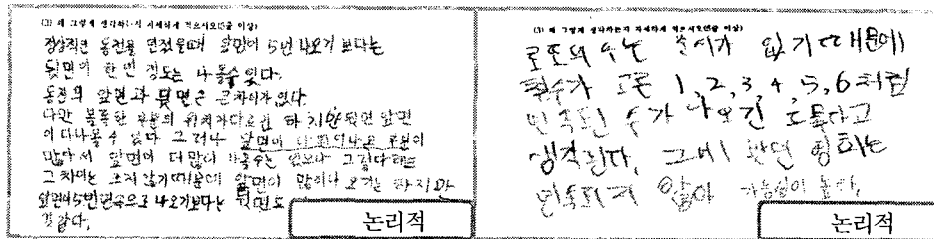 (3) 왜 그렇게 생각하는지 자세하게 적으시오(5줄 이상)
정상적인 동전을 던졌을때 앞면이 5번 나오기 보다는
뒷면이 한번 정도는 나올수 있다.
동전의 앞면과 뒷면은 큰차이가 없다.
다만 볼록한 부분의 위치가다르긴 하지만 뒷면 앞면
이 다나올 수 있다 그러나 앞면이
많아서 앞면이 더 많이 나올수는 있으나 그렇다해도
그 차이는 크지 않기때문에 앞면이 많이나오기는 하지만
앞면이5번연속으로 나오기보다는 뒷면도
것같다.
논리적
(3) 왜 그렇게 생각하는지 자세하게 적으시오(5줄 이상)
로또의 수는 순서가 없기 때문에
1, 2, 3, 4, 5, 6처럼
연속된 수가 나오긴 드물다고
생각된다. 그에 반면 영희는
연속되지 않아 가능성이 높다.
논리적